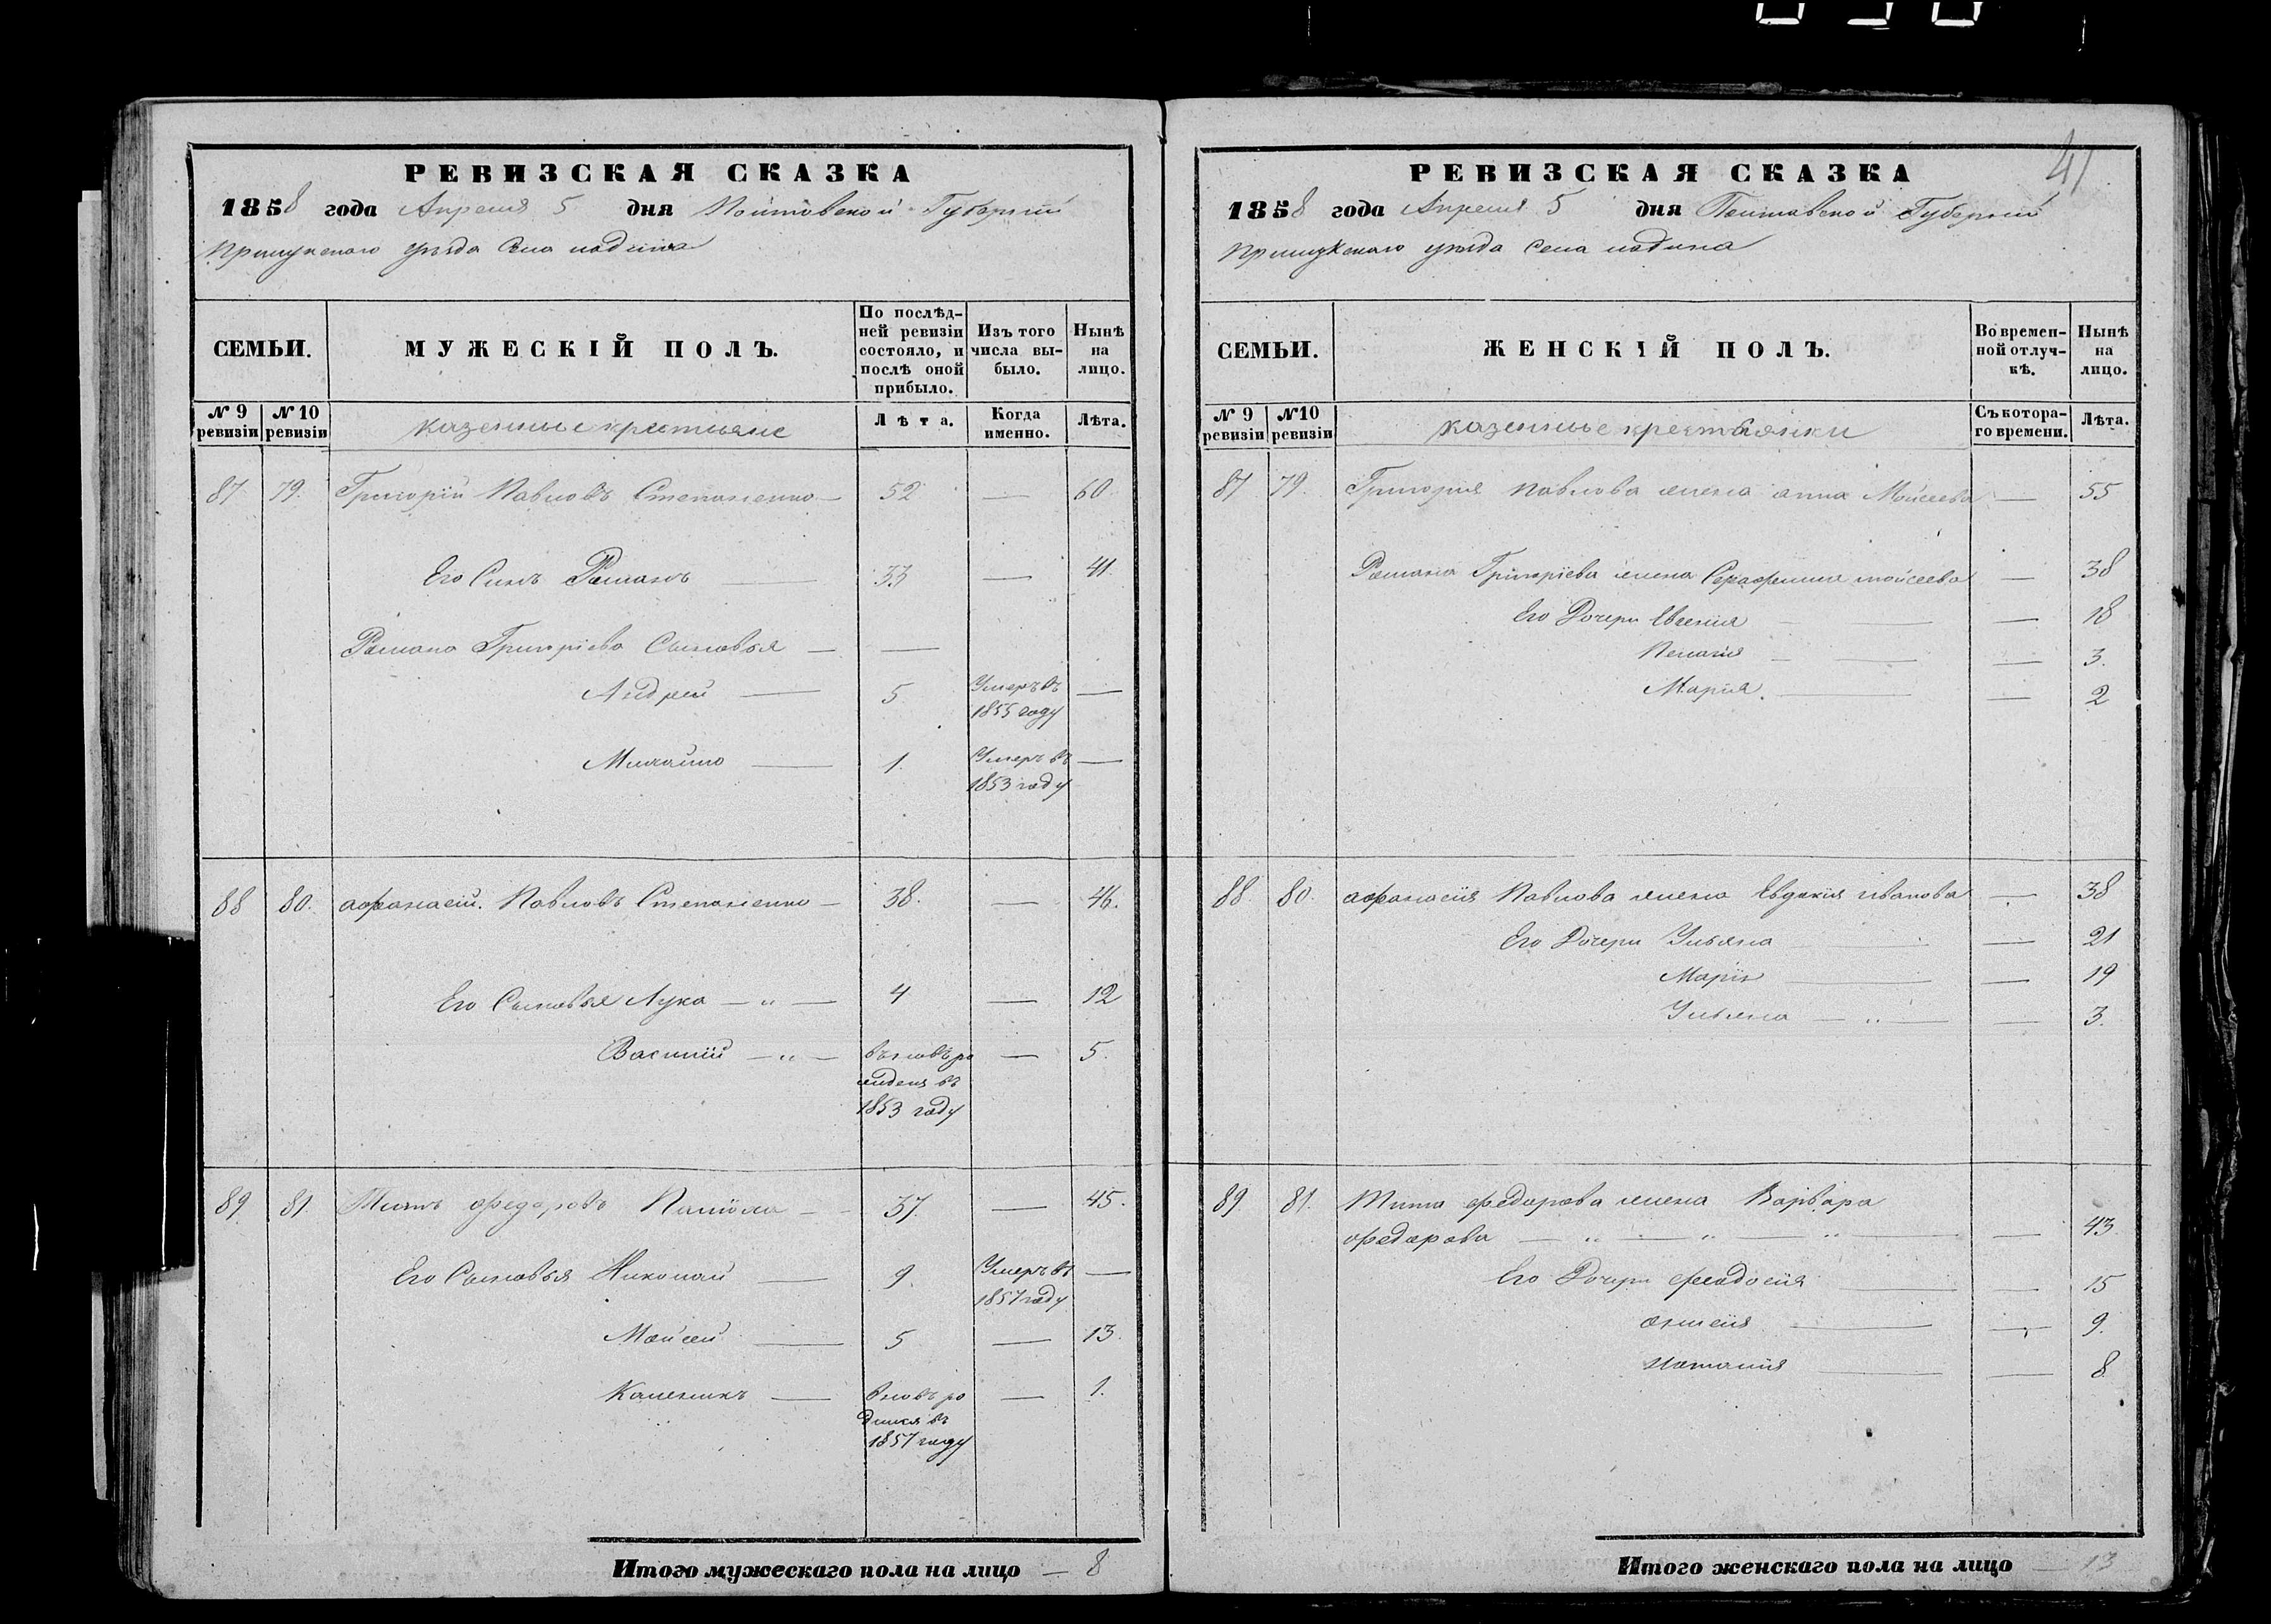 41
РЕВИЗСКАЯ СКАЗКА
1858 года Апреля 5 дня Полтавской Губерніи
Прилукского уѣзда Села
СЕМЬИ.
МУЖЕСКІЙ ПОЛЪ.
По послѣд-
ней ревизіи
состояло, и
послѣ оной
прибыло.
Изъ того
числа вы-
было.
Нынѣ
на
лицо.
№ 9
ревизіи
№ 10
ревизіи
казенные крестьяне
Лѣта.
Когда
именно.
Лѣта.
87 79. Григорій Павловъ Степаненко — 52 — 60
Его Синъ Романъ 33 — 41.
Романа Григоріева Сыновья — —
Андрей — 5 Умеръ въ —
1855 году
Михайло — 1. Умеръ въ —
1853 году
88 80. афанасій. Павловъ Степаненко — 38. — 46.
Его Сыновья Лука — „ — 4 — 12
Василій — „ — вновъ ро — 5.
1853 году
89 81. Титъ федоровъ — 37. — 45.
Его Сыновья Николай — 9. Умеръ въ —
1857 году
Мойсей — 5 — 13.
Каленикъ — вновъ ро — 1.
дился въ
1857 году
Итого мужескаго пола на лицо — 8
РЕВИЗСКАЯ СКАЗКА
1858 года Апреля 5 дня Полтавской Губерніи
Прилукского уѣзда Села
СЕМЬИ.
ЖЕНСКІЙ ПОЛЪ.
Во времен-
ной отлуч-
кѣ.
Нынѣ
на
лицо.
№ 9
ревизіи
№ 10
ревизіи
казенные крестьянки
Съ котора-
го времени.
Лѣта.
87 79. Григорія Павлова жена анна Мойсеева — 55
Романа Григоріева жена Серафима мойсеева — 38
Его Дочери Евгенія — 18
Пелагія — 3.
Марія. — 2
88. 80. афанасія Павлова жена Евдокія иванова — 38
Его Дочери Ульяна — 21
Марія — 19
Ульяна — „ — 3.
89. 81. Тита федорова жена Варвара
федорова — „ — „ — „ — 43.
Его Дочери феодосія — 15
— 9.
наталія — 8
Итого женскаго пола на лицо — 13